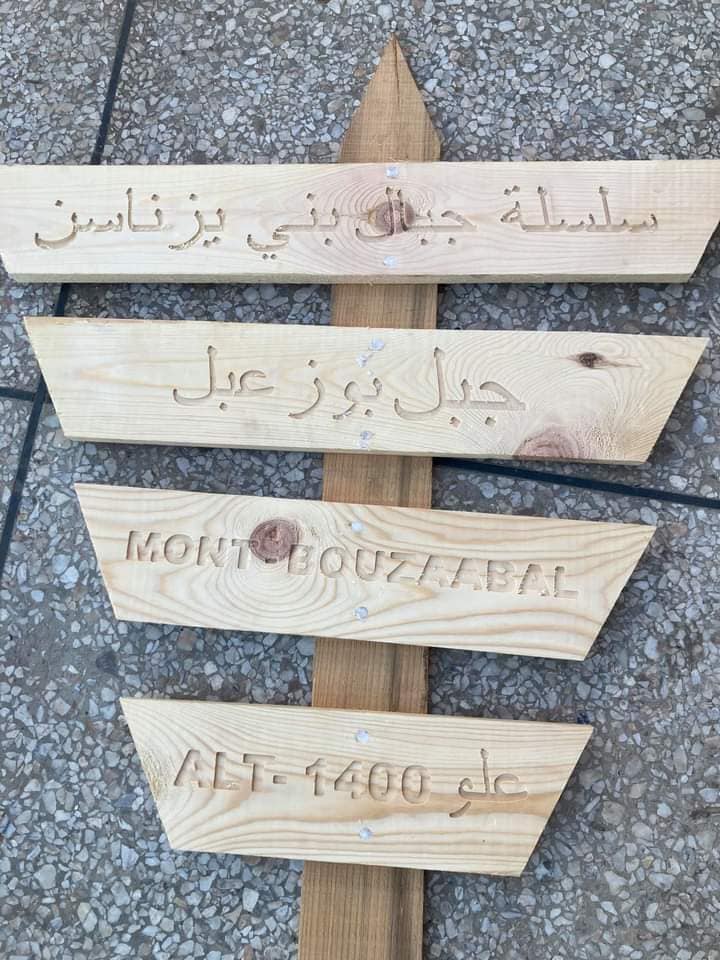 سلسلة جبال بني يزناسن
جبل بوزعبل
MONT-BOUZAABAL
ALT-1400 علو